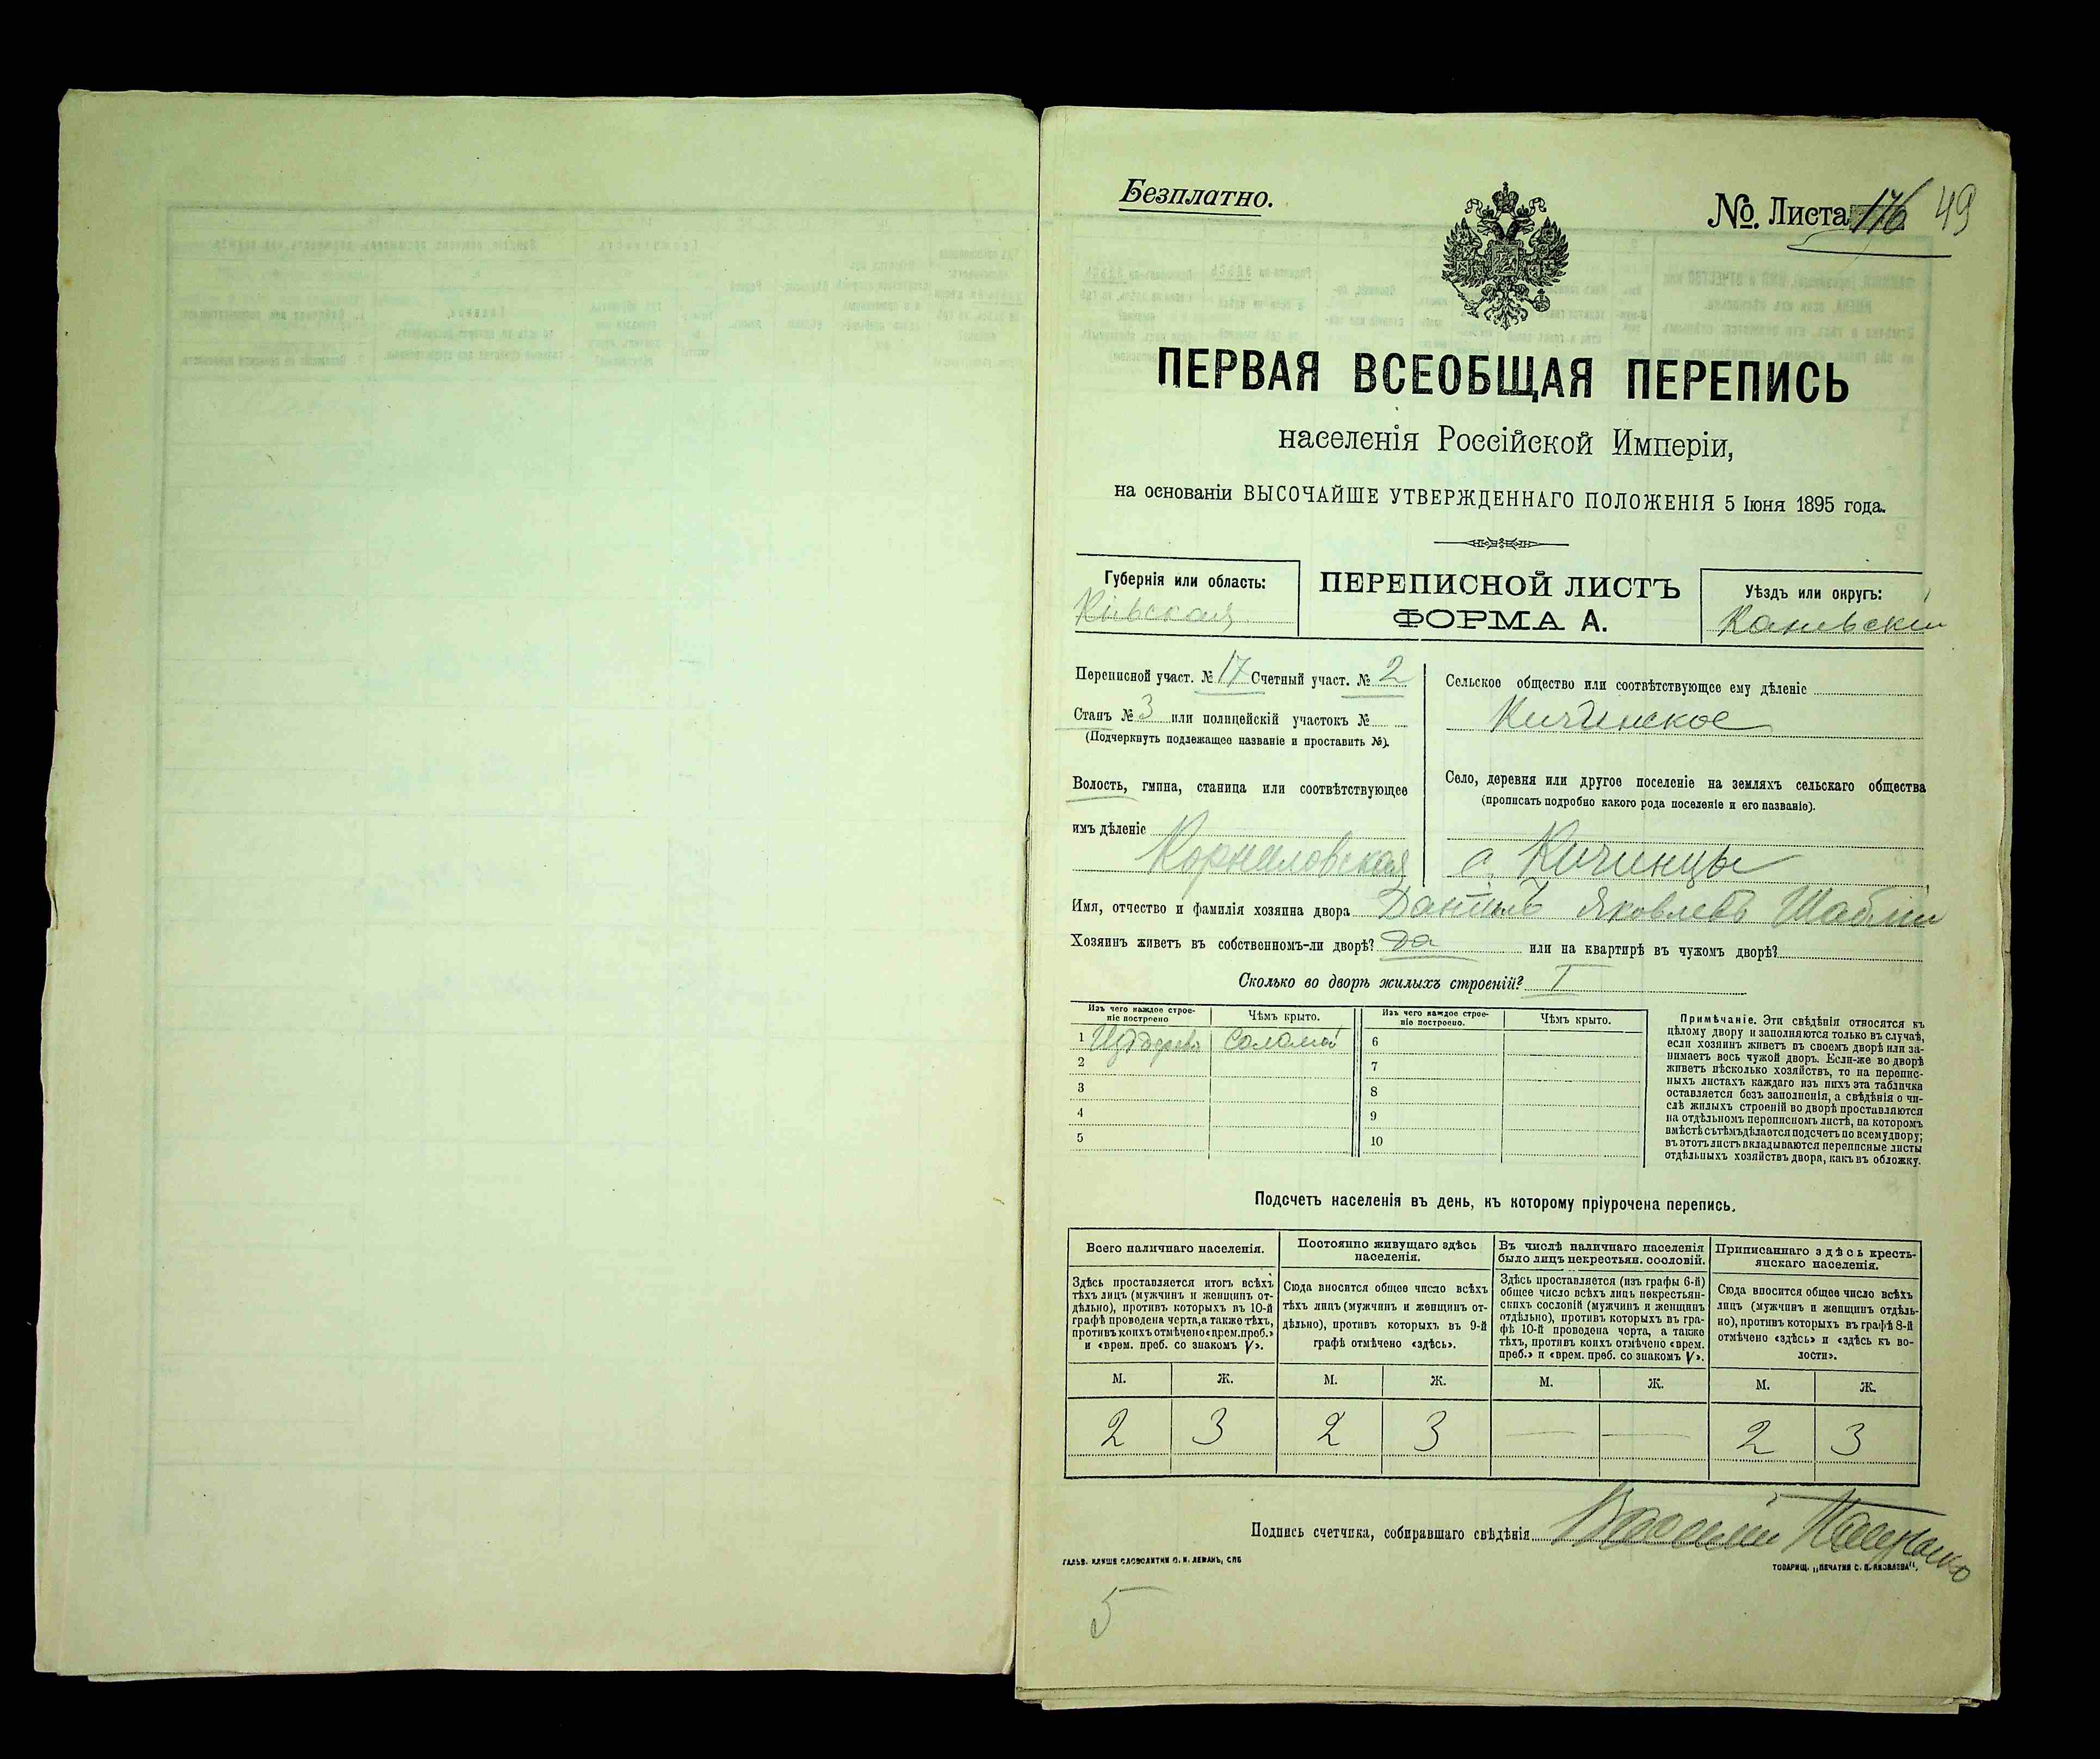 Безплатно.
№. Листа 176 49
ПЕРВАЯ ВСЕОБЩАЯ ПЕРЕПИСЬ
населенія Россійской Имперіи,
на основаніи ВЫСОЧАЙШЕ УТВЕРЖДЕННАГО ПОЛОЖЕНІЯ 5 Іюня 1895 года.
Губернія или область:
Кіевская
ПЕРЕПИСНОЙ ЛИСТЪ
ФОРМА А.
Уѣздъ или округъ:
Каневскій
Переписной участ. № 17 Счетный участ. № 2
Станъ № 3 или полицейскій участокъ №
(Подчеркнуть подлежащее названіе и проставить №).
Волость, гмина, станица или соотвѣтствующее
имъ дѣленіе
Корниловская
Сельское общество или соотвѣтствующее ему дѣленіе
Кичинское
Село, деревня или другое поселеніе на земляхъ сельскаго общества
(прописать подробно какого рода поселеніе и его названіе).
с. Кичинцы
Имя, отчество и фамилія хозяина двора Даниилъ Яковлевъ
Хозяинъ живетъ въ собственномъ-ли дворѣ? Да или на квартирѣ въ чужомъ дворѣ?
Сколько во дворѣ жилыхъ строеній? 1
Изъ чего каждое строе-
ніе построено
Чѣмъ крыто.
Изъ чего каждое строе-
ніе построено.
Чѣмъ крыто.
1 Изъ дерева Соломой
6
2
7
3
8
4
9
5
10
Примѣчаніе. Эти свѣдѣнія относятся къ
цѣлому двору и заполняются только въ случаѣ,
если хозяинъ живетъ въ своемъ дворѣ или за-
нимаетъ весь чужой дворъ. Если-же во дворѣ
живетъ нѣсколько хозяйствъ, то на перепис-
ныхъ листахъ каждаго изъ нихъ эта табличка
оставляется безъ заполненія, а свѣдѣнія о чи-
слѣ жилыхъ строеній во дворѣ проставляются
на отдѣльномъ переписномъ листѣ, на которомъ
вмѣстѣ съ тѣмъ дѣлается подсчетъ по всему двору;
въ этотъ листъ вкладываются переписные листы
отдѣльныхъ хозяйствъ двора, какъ въ обложку.
Подсчетъ населенія въ день, къ которому пріурочена перепись.
Всего наличнаго населенія.
Здѣсь проставляется итогъ всѣхъ
тѣхъ лицъ (мужчинъ и женщинъ от-
дѣльно), противъ которыхъ въ 10-й
графѣ проведена черта, а также тѣхъ,
противъ коихъ отмѣчено «врем. преб.»
и «врем. преб. со знакомъ V».
Постоянно живущаго здѣсь
населенія.
Сюда вносится общее число всѣхъ
тѣхъ лицъ (мужчинъ и женщинъ от-
дѣльно), противъ которыхъ въ 9-й
графѣ отмѣчено «здѣсь».
Въ числѣ наличнаго населенія
было лицъ некрестьян. сословій.
Здѣсь проставляется (изъ графы 6-й)
общее число всѣхъ лицъ некрестьян-
скихъ сословій (мужчинъ и женщинъ
отдѣльно), противъ которыхъ въ гра-
фѣ 10-й проведена черта, а также
тѣхъ, противъ коихъ отмѣчено «врем.
преб.» и «врем. преб. со знакомъ V».
Приписаннаго здѣсь кресть-
янскаго населенія.
Сюда вносится общее число всѣхъ
лицъ (мужчинъ и женщинъ отдѣль-
но), противъ которыхъ въ графѣ 8-й
отмѣчено «здѣсь» и «здѣсь къ во-
лости».
М. Ж. М. Ж. М. Ж. М. Ж.
2 3 2 3 — — 2 3
Подпись счетчика, собиравшаго свѣдѣнія
ГАЛЬВ. КЛИШЕ СЛОВОЛИТНИ О. И. ЛЕМАНЪ, СПБ
ТОВАРИЩ. „ПЕЧАТНЯ С. П. ЯКОВЛЕВА".
5